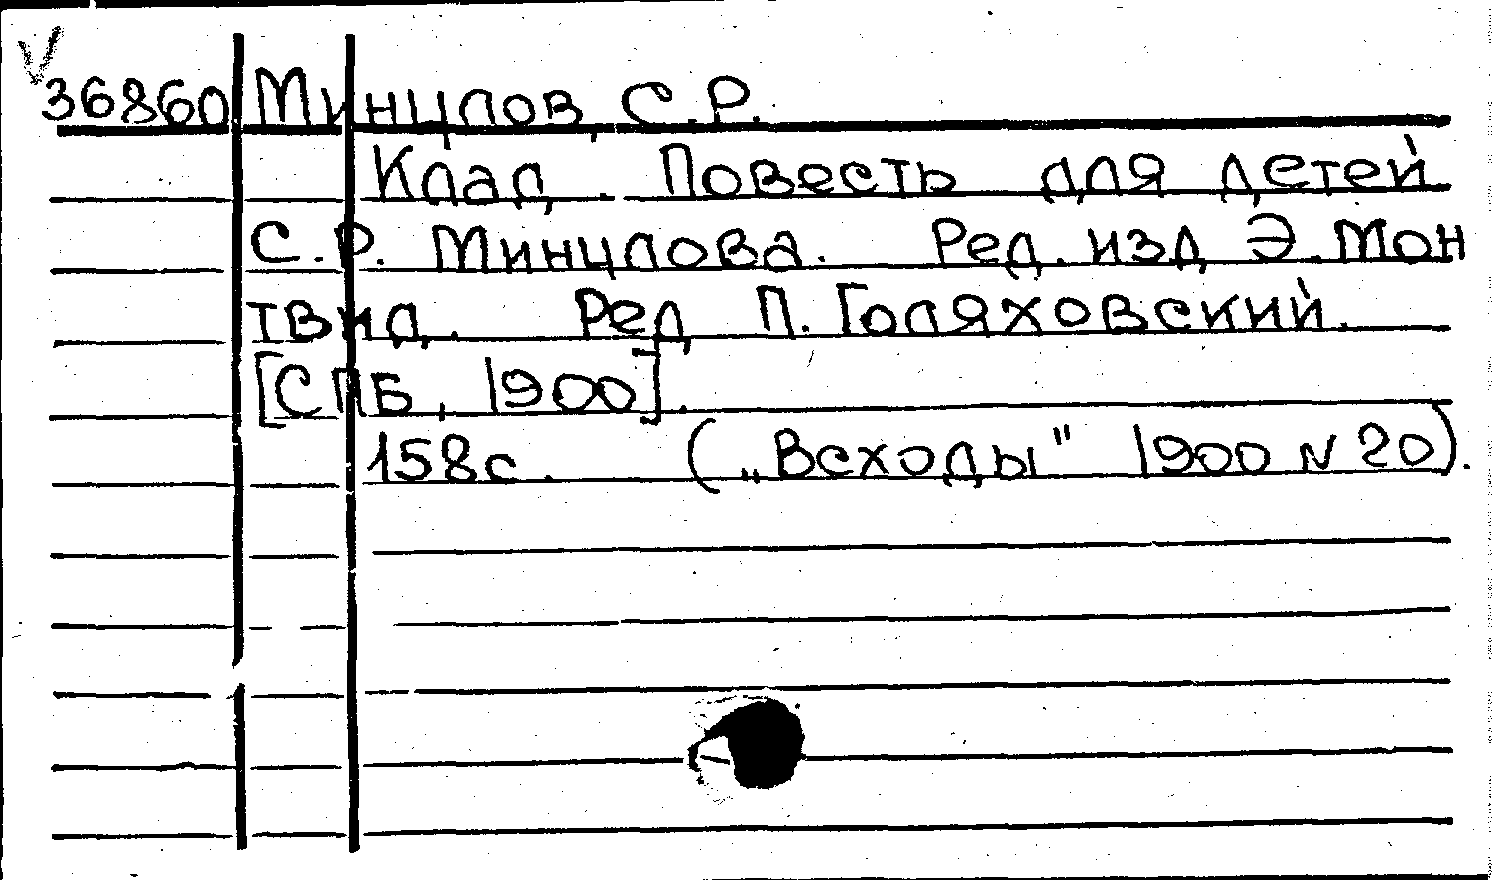 V
36860 Минцлов, С.Р.
Клад. Повесть для детей
С.Р. Минцлова. Ред. изд Э. Мон
твид. Ред П. Голяховский.
[СПБ, 1900].
158с. („Всходы" 1900 N 20).